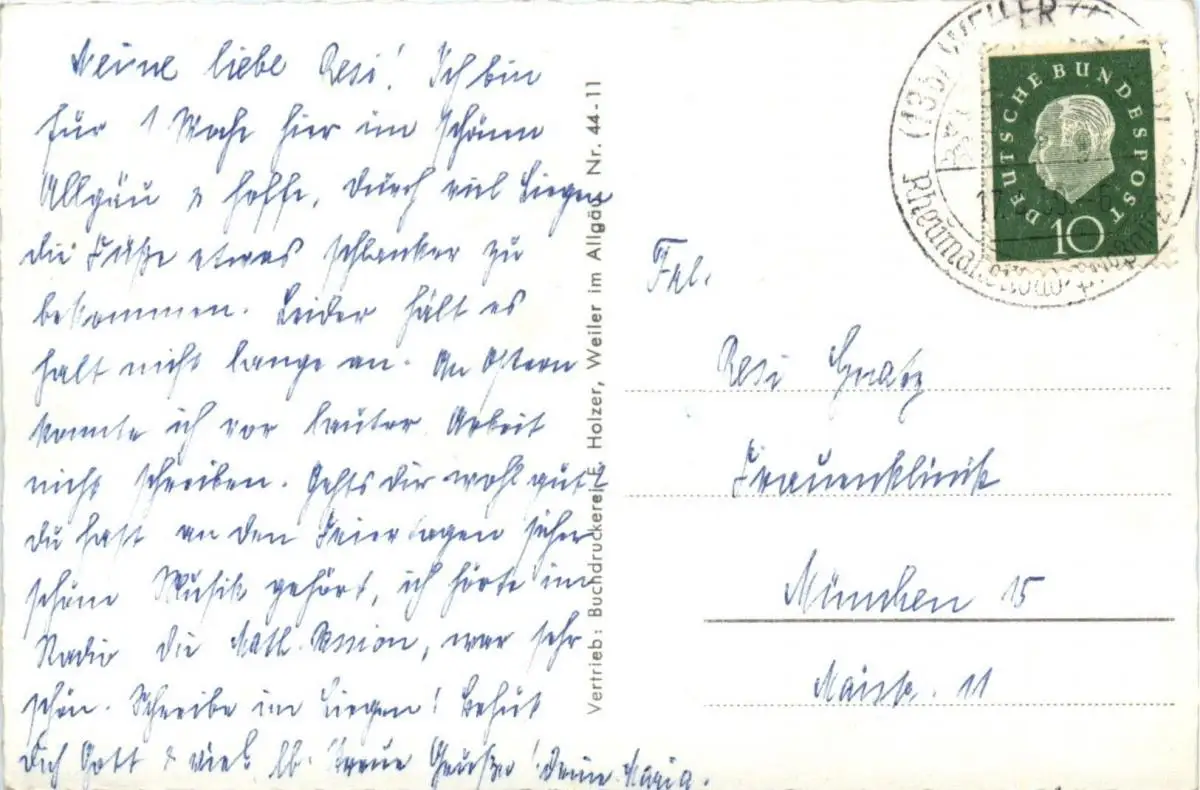 Meine liebe Resi! Ich bin
für 1 Woche hier im schönen
Allgäu & hoffe, durch viel Liegen
die Füße etwas schlanker zu
bekommen. Leider hält es
halt nicht lange an. An Ostern
konnte ich vor lauter Arbeit
nicht schreiben. Gehts dir wohl gut?
Du hast an den Feiertagen sicher
schöne Musik gehört, ich hörte im
Radio die Matth. Passion, war sehr
schön. Schreibe im Liegen! Behüt
dich Gott & viele lb. treue Grüße! deine Maria.
Vertrieb: Buchdruckerei E. Holzer, Weiler im Allgäu Nr. 44-11
Frl.
Resi Gnatz
Frauenklinik
München 15
Maistr. 11
DEUTSCHE BUNDESPOST
10
WEILER